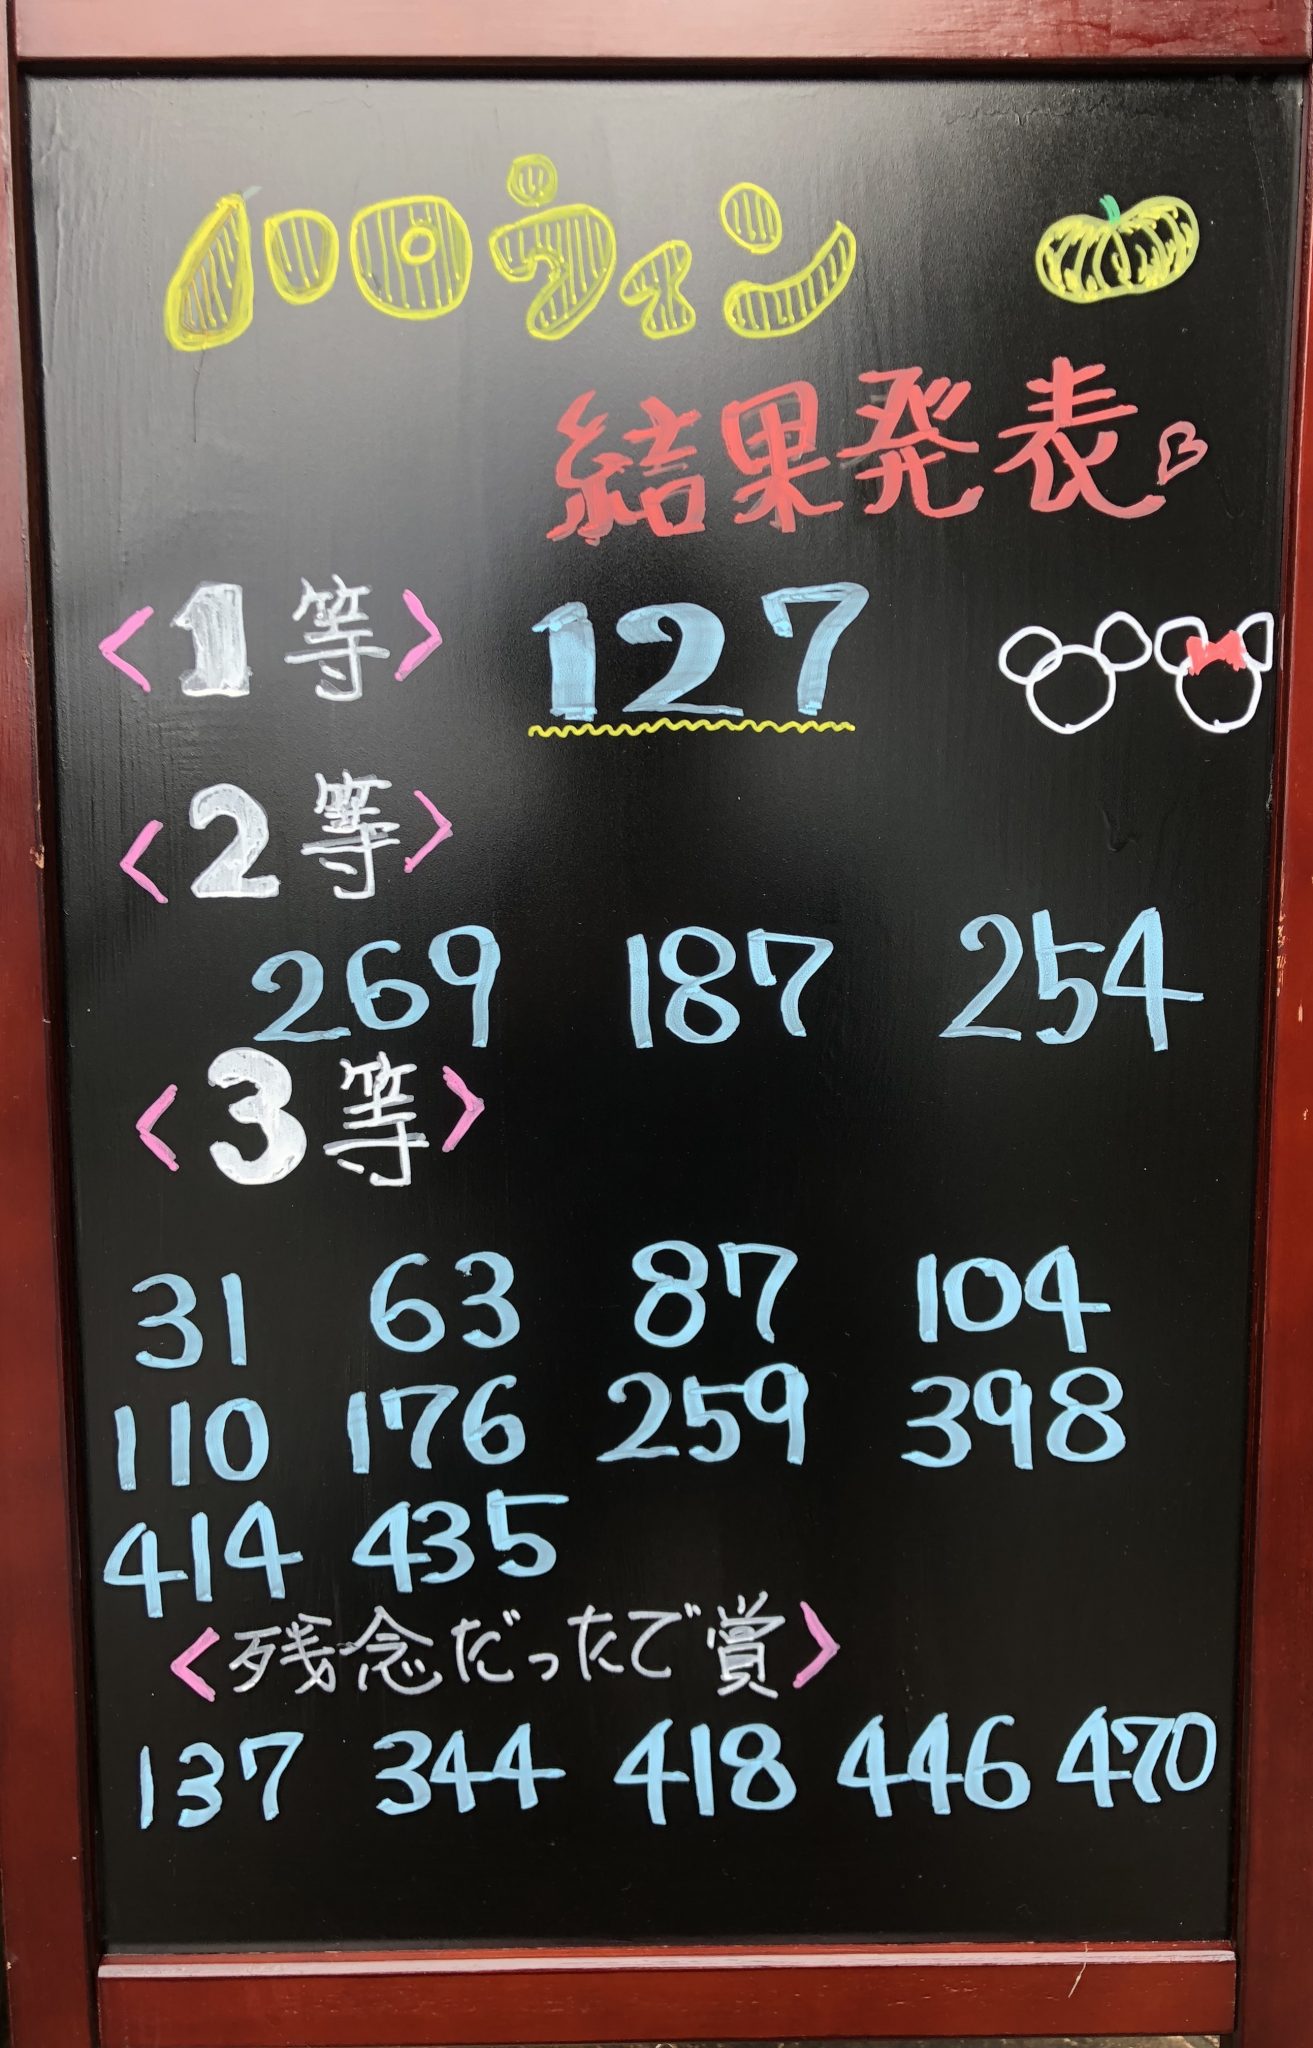 ハロウィン
結果発表
〈1等〉 127
〈2等〉
269 187 254
〈3等〉
31 63 87 104
110 176 259 398
414 435
〈残念だったで賞〉
137 344 418 446 470